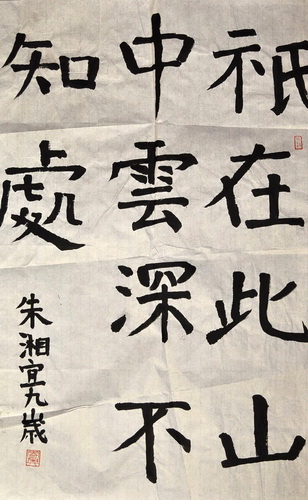 祇在此山
中雲深不
知處
朱湘宜九歲